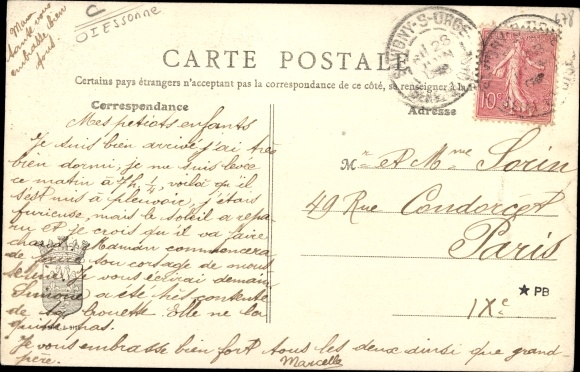 Maman
Jeanne vous
embrasse bien
fort.
C
DIESSONNE
SAVIGNY-S-ORGE
10c
CARTE POSTALE
Certains pays étrangers n'acceptant pas la correspondance de ce côté, se renseigner à la
Correspondance
Adresse
Mes petiots enfants
Je suis bien arrivé j'ai très
bien dormi, je me suis levée
ce matin à 7h ¼, voilà qu'il
s'est mis à pleuvoir, j'étais
furieuse, mais le soleil a repa-
ru et je crois qu'il va faire
chaud. Maman commencera
de faire son corsage de
Je vous écrirai demain
Simone a été très contente
de sa brouette. Elle ne la
quitte pas.
Je vous embrasse bien fort tous les deux ainsi que grand-
père.
Marcelle
Mr et Mme Sorin
49 Rue Condorcet
Paris
IXe
★ PB